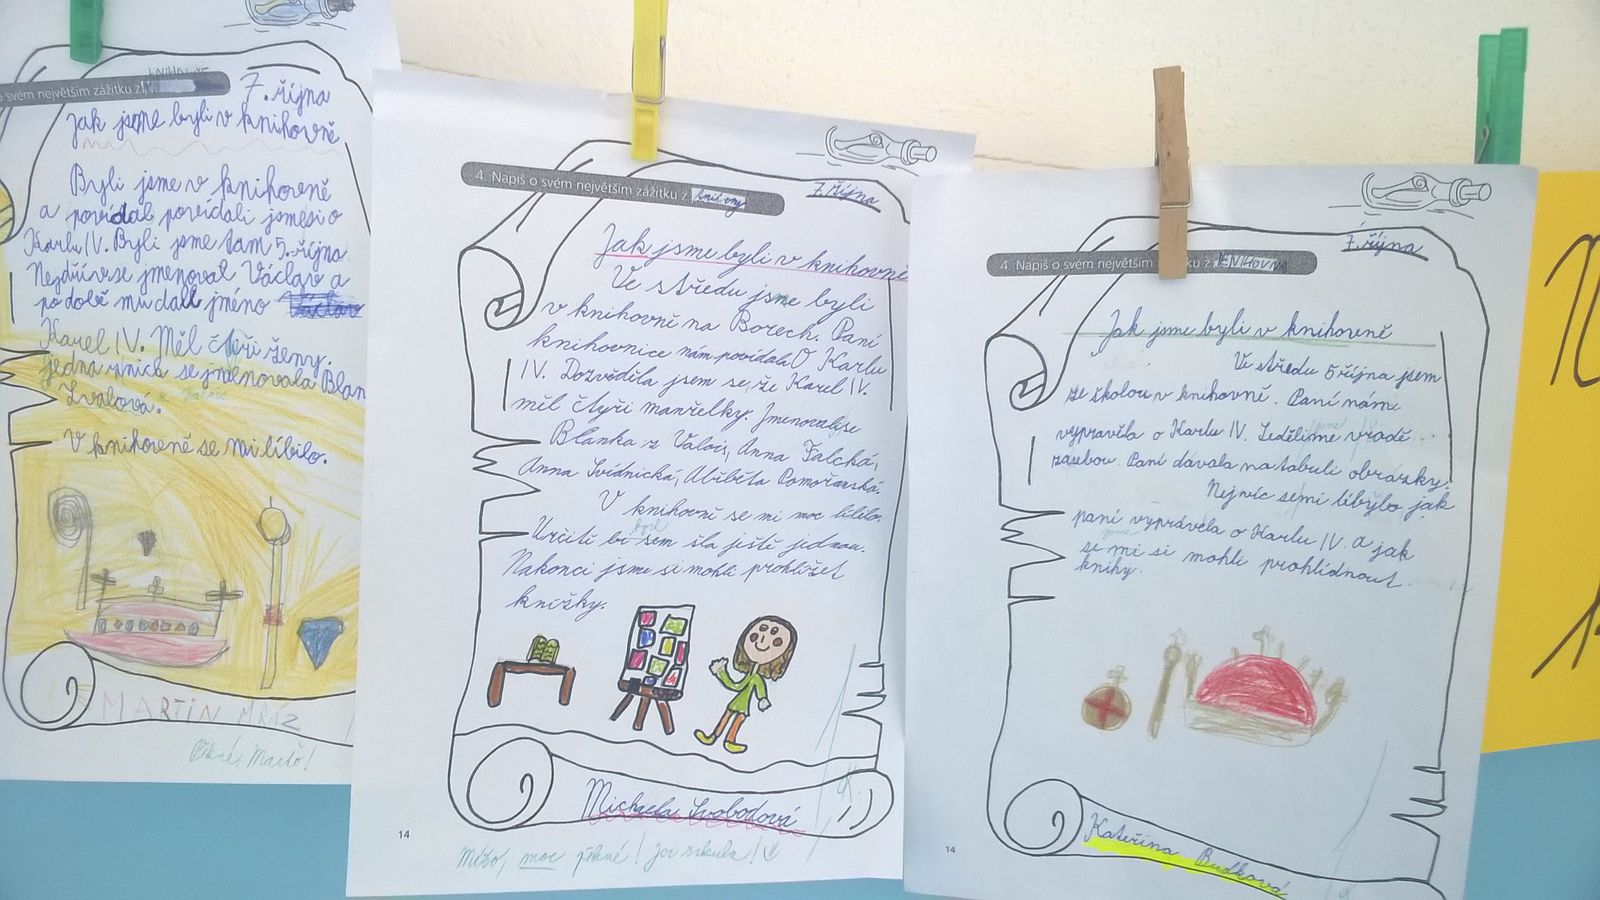 o svém největším zážitku z
7. října
Jak jsme byli v knihovně
Byli jsme v knihovně
a povídal povídali jsme si o
Karlu IV. Byli jsme tam 5. října
Nejdřív se jmenoval Václav a
po době mu dali jméno Václav
Karel IV. Měl čtyři ženy.
jedna z nich se jmenovala Blan
Valová.
V knihovně se mi líbilo.
MARTIN MRÁZ
Pěkné, Marťo!
4. Napiš o svém největším zážitku z
7. října
Jak jsme byli v knihovně
Ve středu jsme byli
v knihovně na Borech. Paní
knihovnice nám povídala O Karlu
IV. Dozvěděla jsem se, že Karel IV.
měl čtyři manželky. Jmenovaly se
Blanka z Valois, Anna Falcká,
Anna Svídnická, Alžběta Pomořanská.
V knihovně se mi moc líbilo.
Určitě bych sem šla ještě jednou.
Nakonci jsme si mohli prohlížet
knížky.
Michaela Svobodová
14
Míšo, moc pěkné! Jsi szkula!
4. Napiš o svém největším zážitku z KNIHOVNA
7. října
Jak jsme byli v knihovně
Ve středu 5 října jsem
ze školou v knihovně. Paní nám
vyprávěla o Karlu IV. Seděli jsme v řadě
za sebou. Paní dávala na tabuli obrázky.
Nejvíc se mi líbylo jak
paní vyprávěla o Karlu IV. a jak
se mi si mohli prohlídnout
knihy.
Kateřina Budková
14